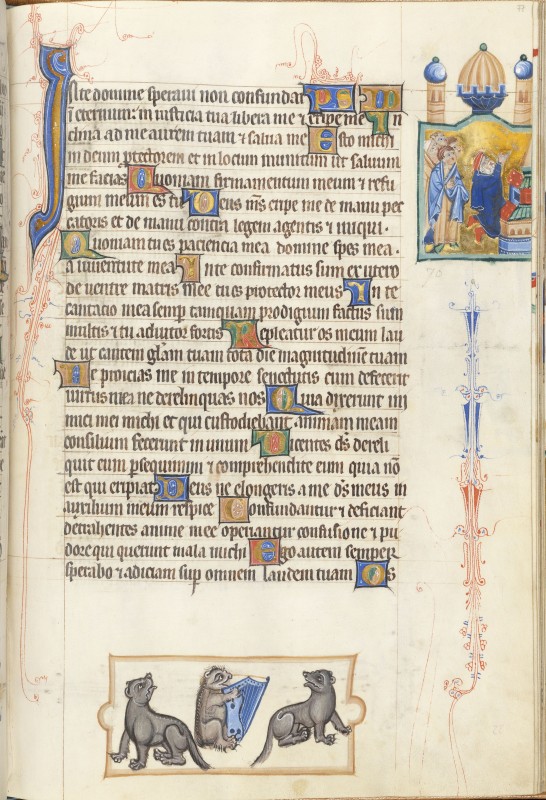 In te domine speraui non confundar
ī eternum: in iusticia tua libera me ⁊ eripe me In
clina ad me aurem tuam ⁊ salua me Esto michi
in deum protectorem et in locum munitum ut saluum
me facias Quoniam firmamentum meum ⁊ refu
gium meum es tu Deus m̅s eripe me de manu pec
catoris et de manu contra legem agentis ⁊ iniqui.
Quoniam tu es paciencia mea domine spes mea.
a iuuentute mea In te confirmatus sum ex utero
de uentre matris mee tu es protector meus In te
cantatio mea semp tanquam prodigium factus sum
multis ⁊ tu adiutor fortis Repleatur os meum lau
de ut cantem gl̅am tuam tota die magnitudinē tuam
Ne proicias me in tempore senectutis cum defecerit
uirtus mea ne derelinquas nos Quia dixerunt in
imici mei michi et qui custodiebant animam meam
consilium fecerunt in unum Dicentes d̅s dereli
quit eum psequimini ⁊ comprehendite eum quia nō
est qui eripiat Deus ne elongeris a me d̅s meus in
auxilium meum respice Confundantur ⁊ deficiant
detrahentes anime mee operiantur confusione ⁊ pu
dore qui querunt mala michi Ego autem semper
sperabo ⁊ adiciam sup omnem laudem tuam Os